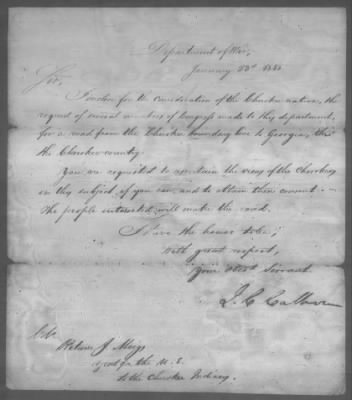 Department of War,
January 22d
Sir,
I enclose for the consideration of the Cherokee nation, the
request of several members of Congress made to this department,
for a road from the Cherokee boundary line to Georgia, thro'
the Cherokee country.
You are requested to ascertain the views of the Cherokees
on this subject, if you can, and to obtain their consent.
The people interested will make the road.
I have the honor to be,
with great respect,
Your obedt. Servant
J. C. Calhoun
Return J. Meigs
agent for the U. S.
to the Cherokee Indians.